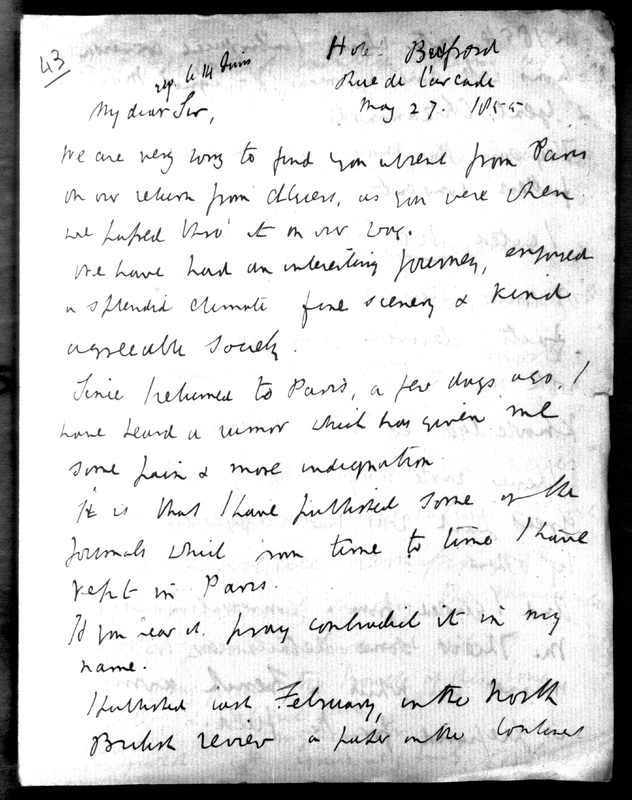 43
rep. le 14 Juin
Hotel Bedford
Rue de l'arcade
May 27. 1855
My dear Sir,
We are very sorry to find you absent from Paris
on our return from Algiers, as you were when
we passed thro' it on our way.
We have had an interesting journey, enjoyed
a splendid climate fine scenery & kind
agreeable society.
Since I returned to Paris, a few days ago, I
have heard a rumor which has given me
some pain & more indignation.
It is that I have published some of the
journals which from time to time I have
kept in Paris.
If you hear it pray contradict it in my
name.
I published last February, in the North
British review a paper on the Continent